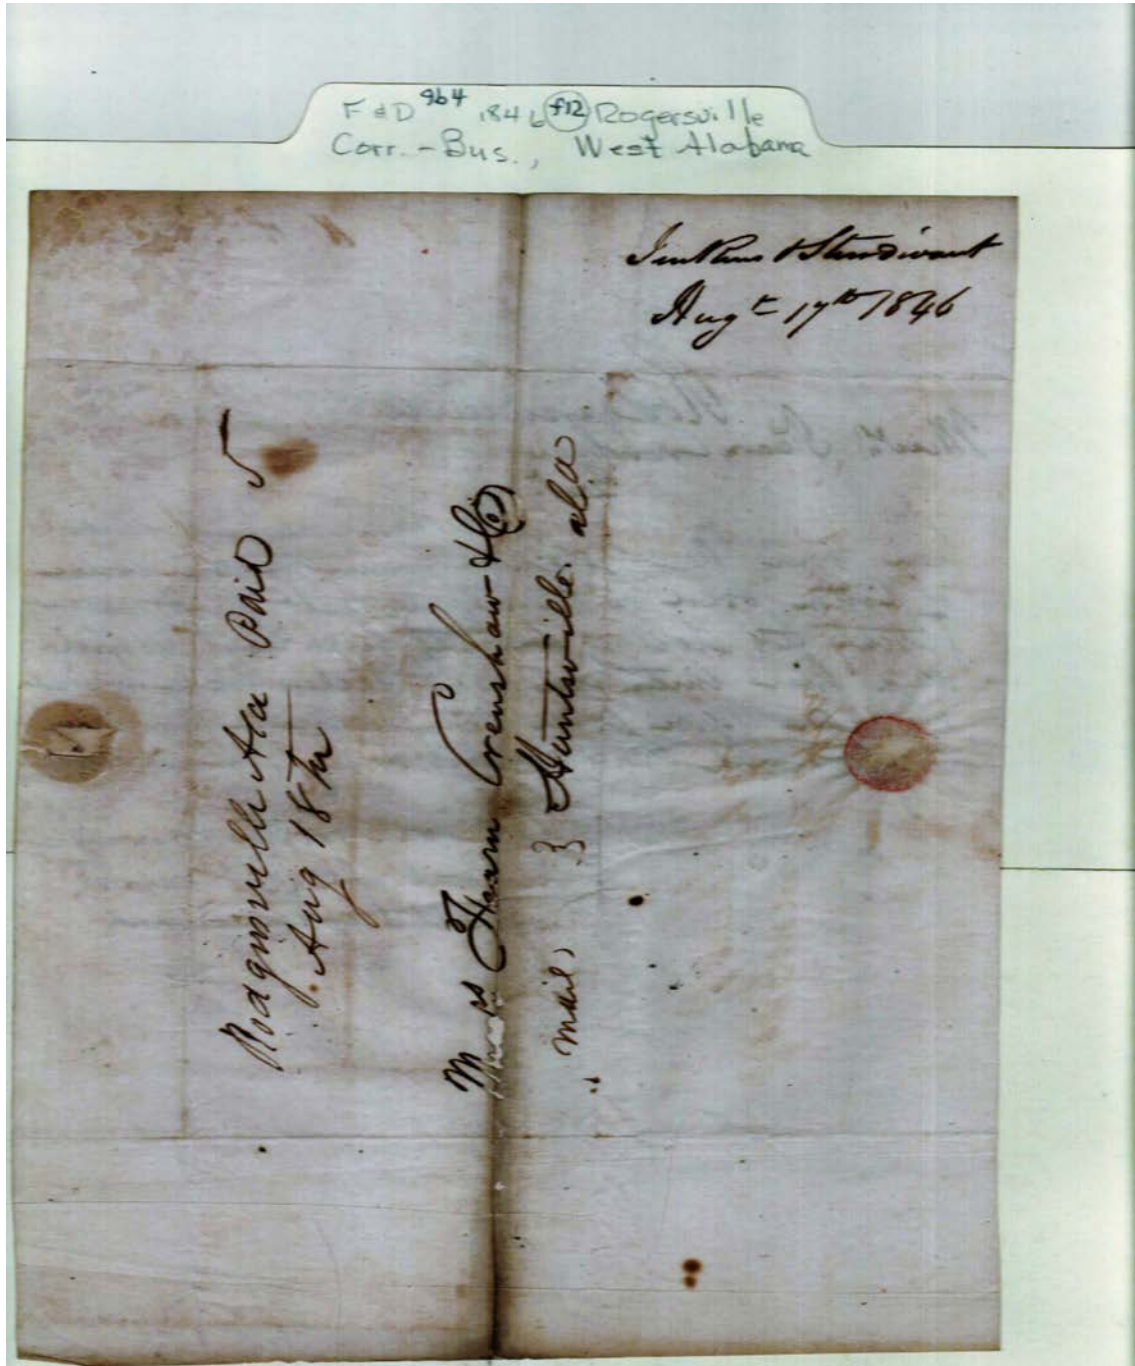 F & D 9b4 1846 f12 Rogersville
Corr. - Bus., West Alabama
Jenkins & Sturdivant
Augt 17th 1846
Rodgersvelle Ala Paid 5
Aug 18th
Messrs Fearn Crenshaw & Co
mail } Huntsville. ala